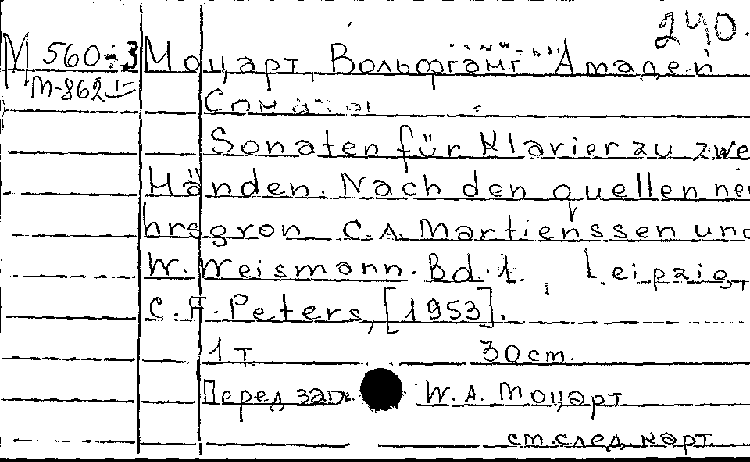 240.
М 560-3 Моцарт, Вольфганг Амадей
М-862 I Сонаты
Sonaten für Klavier zu zwe
Händen. Nach den quellen neu
hrsg von C. A. Martienssen und
W. Weismann. Bd. 1. Leipzig,
C. F. Peters, [1953].
1 т. 30 cm.
Перед загл. W. A. Моцарт
см. след. карт